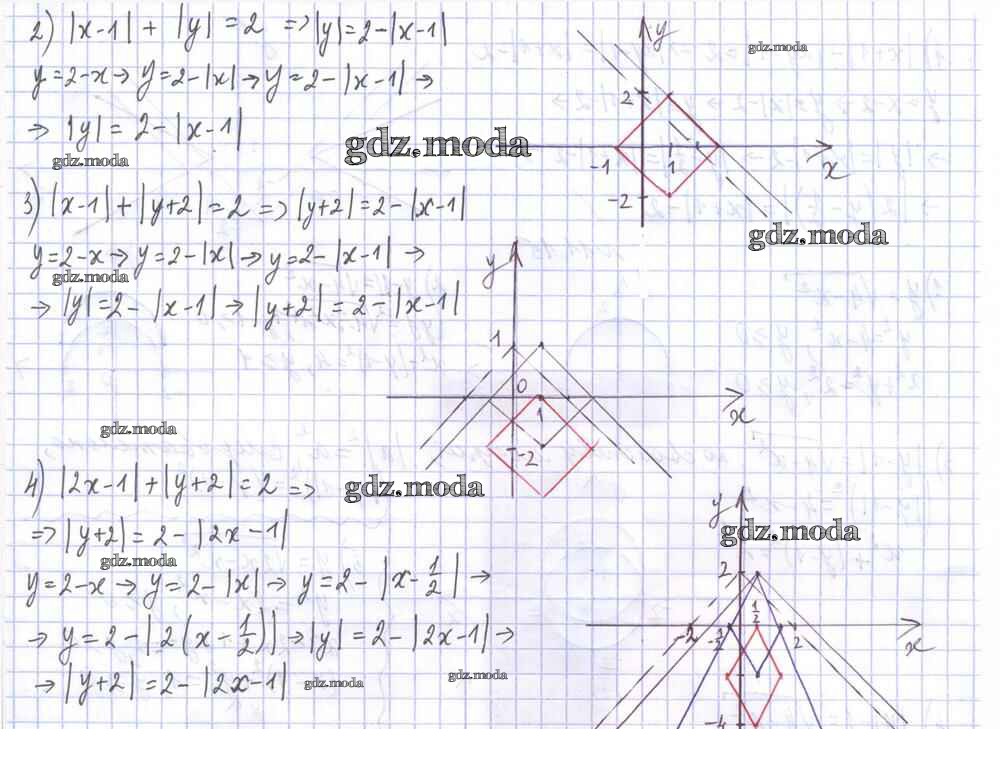 2) |x-1| + |y| = 2 => |y| = 2 - |x-1|
y = 2 - x → y = 2 - |x| → y = 2 - |x-1| →
→ |y| = 2 - |x-1|
gdz.moda
gdz.moda
gdz.moda
y
2
-1
1
x
-2
gdz.moda
3) |x-1| + |y+2| = 2 => |y+2| = 2 - |x-1|
y = 2 - x → y = 2 - |x| → y = 2 - |x-1| →
gdz.moda
→ |y| = 2 - |x-1| → |y+2| = 2 - |x-1|
y
1
0
1
x
-2
gdz.moda
4) |2x-1| + |y+2| = 2 =>
gdz.moda
=> |y+2| = 2 - |2x-1|
gdz.moda
y = 2 - x → y = 2 - |x| → y = 2 - |x - 1/2| →
→ y = 2 - |2(x - 1/2)| → |y| = 2 - |2x-1| →
→ |y+2| = 2 - |2x-1|
gdz.moda
gdz.moda
y
gdz.moda
2
1/2
-2
2
x
-4